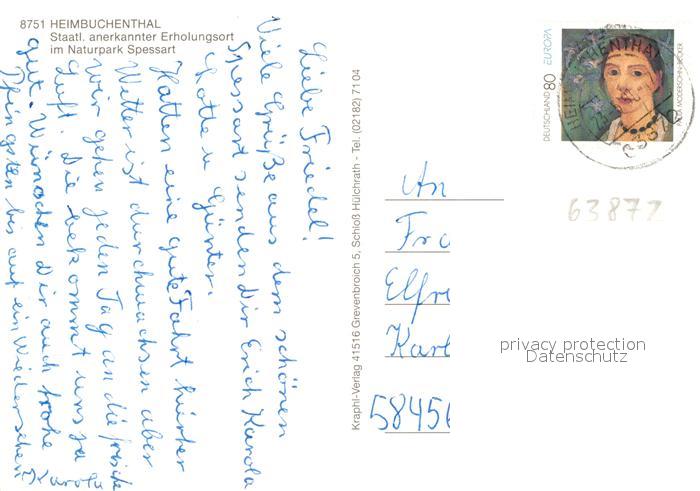 8751 HEIMBUCHENTHAL
Staatl. anerkannter Erholungsort
im Naturpark Spessart
Liebe Friedel!
Viele Grüße aus dem schönen
Spessart senden Dir Erich Karola
Lotte u Günter.
Hatten eine gute Fahrt hierher
Wetter ist durchwachsen aber
wir gehen jeden Tag an die frische
Luft. Die bekommt uns ja
gut. Wünschen Dir auch frohe
Pfingsten bis auf ein Wiedersehen
Karola
Kraphl-Verlag 41516 Grevenbroich 5, Schloß Hülchrath - Tel. (02182) 71 04
DEUTSCHLAND 80 EUROPA
PAULA MODERSOHN-BECKER
63872
An
Fra
Elfri
Karl
58456
63872
privacy protection
Datenschutz